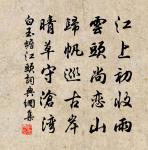 江上初收雨
雲頭尚戀山
歸帆巡古岸
晴草守滄灣
白玉蟾江頭詞與獨集